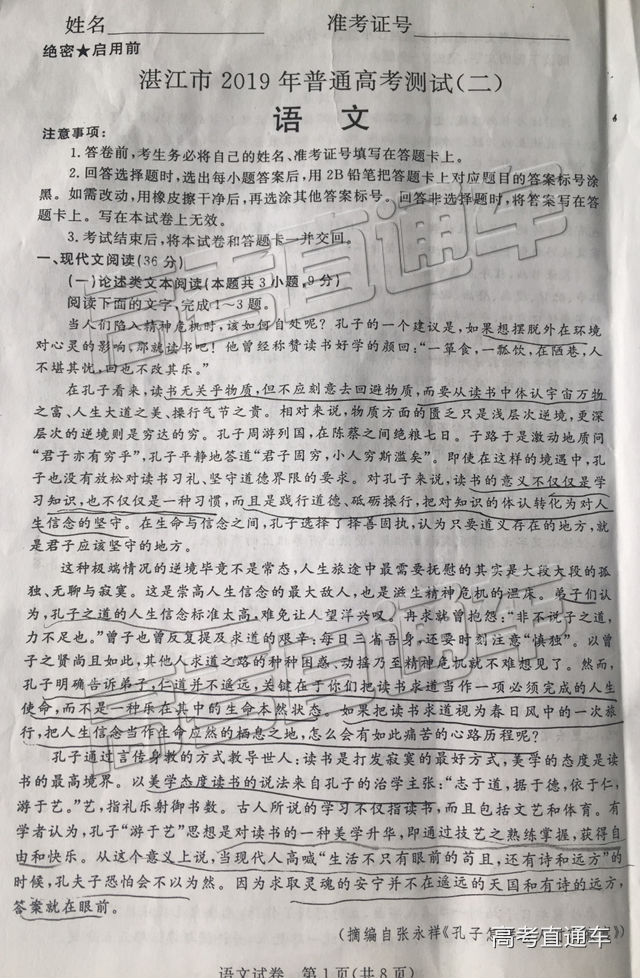 姓名 准考证号
绝密★启用前
湛江市2019年普通高考测试(二)
语 文
注意事项:
1.答卷前,考生务必将自己的姓名、准考证号填写在答题卡上。
2.回答选择题时,选出每小题答案后,用2B铅笔把答题卡上对应题目的答案标号涂
黑。如需改动,用橡皮擦干净后,再选涂其他答案标号。回答非选择题时,将答案写在答
题卡上。写在本试卷上无效。
3.考试结束后,将本试卷和答题卡一并交回。
一、现代文阅读(36分)
(一)论述类文本阅读(本题共3小题,9分)
阅读下面的文字,完成1~3题。
当人们陷入精神危机时,该如何自处呢?孔子的一个建议是,如果想摆脱外在环境
对心灵的影响,那就读书吧!他曾经称赞读书好学的颜回:“一箪食,一瓢饮,在陋巷,人
不堪其忧,回也不改其乐。”
在孔子看来,读书无关乎物质,但不应刻意去回避物质,而要从读书中体认宇宙万物
之富、人生大道之美、操行气节之贵。相对来说,物质方面的匮乏只是浅层次逆境,更深
层次的逆境则是穷达的穷。孔子周游列国,在陈蔡之间绝粮七日。子路于是激动地质问
“君子亦有穷乎”,孔子平静地答道“君子固穷,小人穷斯滥矣”。即使在这样的境遇中,孔
子也没有放松对读书习礼、坚守道德界限的要求。对孔子来说,读书的意义不仅仅是学
习知识,也不仅仅是一种习惯,而且是践行道德、砥砺操行,把对知识的体认转化为对人
生信念的坚守。在生命与信念之间,孔子选择了择善固执,认为只要道义存在的地方,就
是君子应该坚守的地方。
这种极端情况的逆境毕竟不是常态,人生旅途中最需要抚慰的其实是大段大段的孤
独、无聊与寂寞。这是崇高人生信念的最大敌人,也是滋生精神危机的温床。弟子们认
为,孔子之道的人生信念标准太高,难免让人望洋兴叹。冉求就曾抱怨:“非不说子之道,
力不足也。”曾子也曾反复提及求道的艰辛:每日三省吾身,还要时刻注意“慎独”。以曾
子之贤尚且如此,其他人求道之路的种种困惑、动摇乃至精神危机就不难想见了。然而,
孔子明确告诉弟子,仁道并不遥远,关键在于你们把读书求道当作一项必须完成的人生
使命,而不是一种乐在其中的生命本然状态。如果把读书求道视为春日风中的一次旅
行,把人生信念当作生命应然的栖息之地,怎么会有如此痛苦的心路历程呢?
孔子通过言传身教的方式教导世人:读书是打发寂寞的最好方式,美学的态度是读
书的最高境界。以美学态度读书的说法来自孔子的治学主张:“志于道,据于德,依于仁,
游于艺。”艺,指礼乐射御书数。古人所说的学习不仅指读书,而且包括文艺和体育。有
学者认为,孔子“游于艺”思想是对读书的一种美学升华,即通过技艺之熟练掌握,获得自
由和快乐。从这个意义上说,当现代人高喊“生活不只有眼前的苟且,还有诗和远方”的
时候,孔夫子恐怕会不以为然。因为求取灵魂的安宁并不在遥远的天国和有诗的远方,
答案就在眼前。
(摘编自张永祥《孔子怎
语文试卷 第1页(共8页)
高考直通车
高考直通车
高考直通车
高考直通车